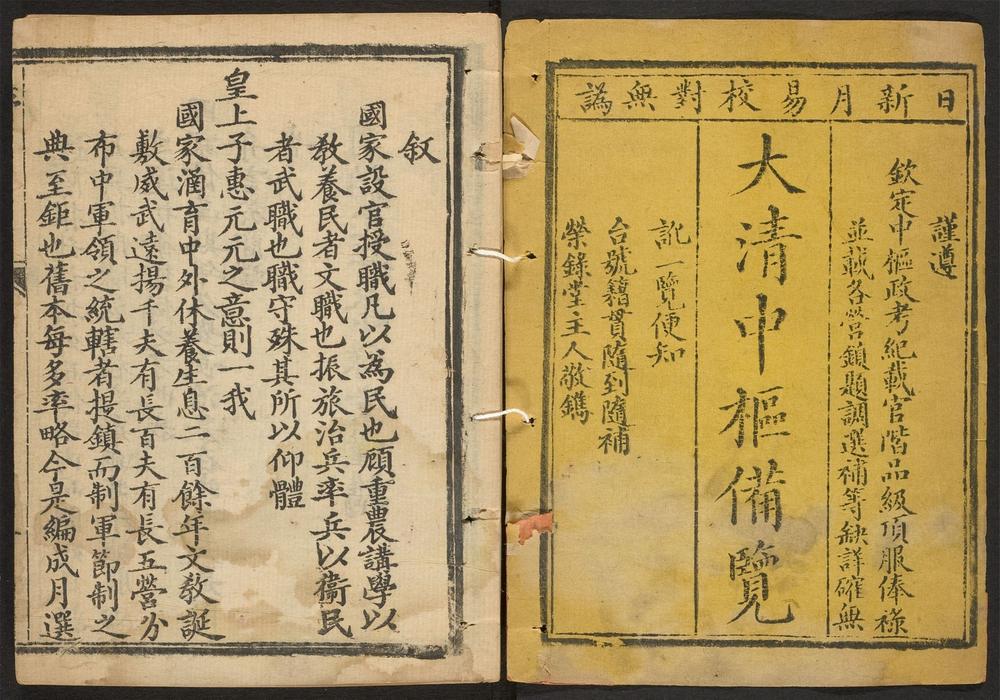 日新月易校對無譌
謹遵
欽定中樞政考紀載官階品級頂服俸祿
並載各營鎖題調選補等缺詳確無
大清中樞備覽
訛一覽便知
台號籍貫隨到隨補
榮錄堂主人敬鐫
叙
國家設官授職凡以為民也顧重農講學以
教養民者文職也振旅治兵率兵以衞民
者武職也職守殊其所以仰體
皇上子惠元元之意則一我
國家涵育中外休養生息二百餘年文教誕
敷威武遠揚千夫有長百夫有長五營分
布中軍領之統轄者提鎮而制軍節制之
典至鉅也舊本每多率略今是編成月選